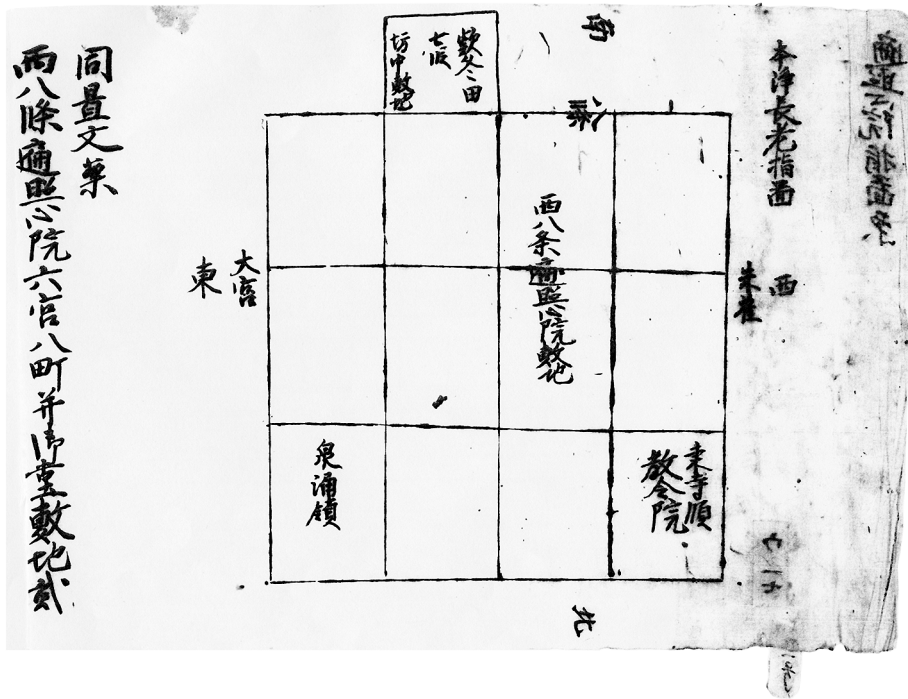 遍照心院指圖案
本浄長老指圖
西
朱雀
南
八条
欵冬田
七段
坊中敷地
西八条遍照心院敷地
東寺領
教令院
泉涌領
大宮
東
北
同置文案
西八條遍照心院六宮八町并御堂敷地貳